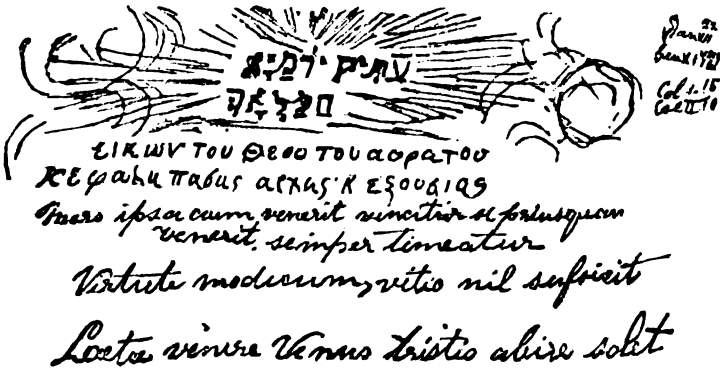 עתיק יומיא
22
Dan VII
Col 1.15
Col II 10
εικων του Θεου του αορατου
κεφαλη πασης αρχης κ εξουσιας
Mors ipsa cum venerit vincitur si priusquam
venerit, semper timeatur
Virtute modicum, vitio nil sufficit
Laeta venire Venus tristis abire solet